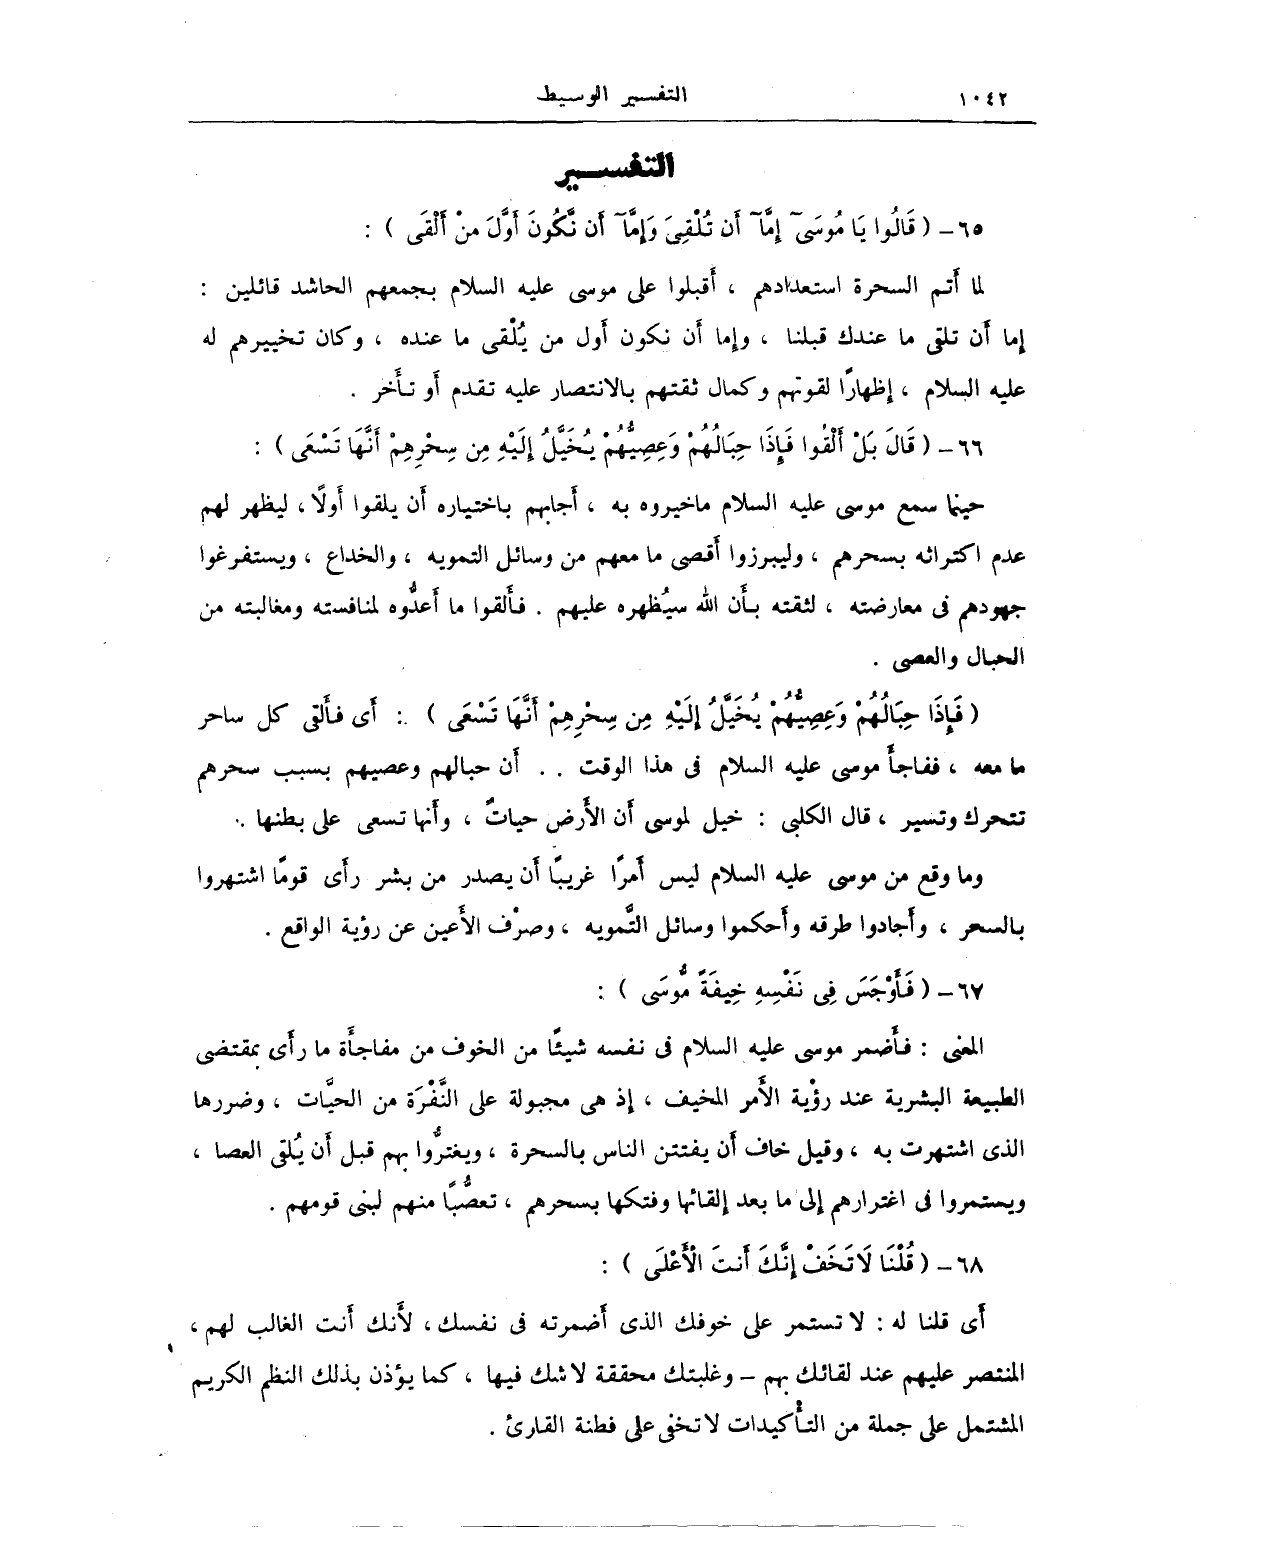 ١٠٤٢
التفسير الوسيط
التفسير
٦٥ـ ( قَالُوا يَا مُوسَىٓ إِمَّآ أَن تُلْقِىَ وَإِمَّآ أَن نَّكُونَ أَوَّلَ مَنْ أَلْقَى ) :
لما أَتم السحرة استعدادهم ، أَقبلوا على موسى عليه السلام بجمعهم الحاشد قائلين :
إما أَن تلقى ما عندك قبلنا ، وإما أَن نكون أَول من يُلْقى ما عنده ، وكان تخييرهم له
عليه السلام ، إظهارًا لقوتهم وكمال ثقتهم بالانتصار عليه تقدم أَو تأَخر .
٦٦ـ ( قَالَ بَلْ أَلْقُوا فَإِذَا حِبَالُهُمْ وَعِصِيُّهُمْ يُخَيَّلُ إِلَيْهِ مِن سِحْرِهِمْ أَنَّهَا تَسْعَى ) :
حينما سمع موسى عليه السلام ماخيروه به ، أَجابهم باختياره أَن يلقوا أَولًا ، ليظهر لهم
عدم اكتراثه بسحرهم ، وليبرزوا أَقصى ما معهم من وسائل التمويه ، والخداع ، ويستفرغوا
جهودهم فى معارضته ، لثقته بأَن الله سيُظهره عليهم . فأَلقوا ما أَعدُّوه لمنافسته ومغالبته من
الحبال والعصى .
( فَإِذَا حِبَالُهُمْ وَعِصِيُّهُمْ يُخَيَّلُ إِلَيْهِ مِن سِحْرِهِمْ أَنَّهَا تَسْعَى ) : أَى فأَلقى كل ساحر
ما معه ، ففاجأَ موسى عليه السلام فى هذا الوقت . . أَن حبالهم وعصيهم بسبب سحرهم
تتحرك وتسير ، قال الكلبى : خيل لموسى أَن الأَرض حياتٌ ، وأَنها تسعى على بطنها .
وما وقع من موسى عليه السلام ليس أَمرًا غريبًا أَن يصدر من بشر رأَى قومًا اشتهروا
بالسحر ، وأَجادوا طرقه وأَحكموا وسائل التَّمويه ، وصرْف الأَعين عن رؤية الواقع .
٦٧ـ ( فَأَوْجَسَ فِى نَفْسِهِ خِيفَةً مُّوسَى ) :
المعنى : فأَضمر موسى عليه السلام فى نفسه شيئًا من الخوف من مفاجأَة ما رأَى بمقتضى
الطبيعة البشرية عند رؤْية الأَمر المخيف ، إذ هى مجبولة على النَّفْرَة من الحيَّات ، وضررها
الذى اشتهرت به ، وقيل خاف أَن يفتتن الناس بالسحرة ، ويغترُّوا بهم قبل أَن يُلقى العصا ،
ويستمروا فى اغترارهم إلى ما بعد إلقائها وفتكها بسحرهم ، تعصُّبًا منهم لبنى قومهم .
٦٨ـ ( قُلْنَا لَا تَخَفْ إِنَّكَ أَنتَ الْأَعْلَى ) :
أَى قلنا له : لا تستمر على خوفك الذى أَضمرته فى نفسك ، لأَنك أَنت الغالب لهم ،
المنتصر عليهم عند لقائك بهم ـ وغلبتك محققة لاشك فيها ، كما يؤذن بذلك النظم الكريم
المشتمل على جملة من التأْكيدات لا تخفى على فطنة القارئ .